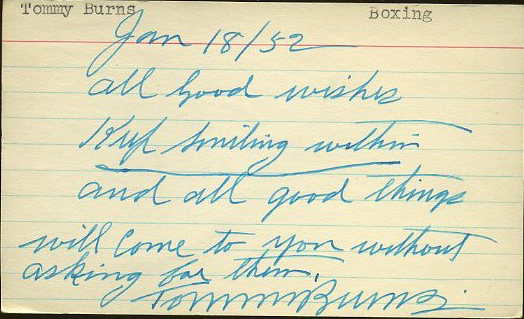 Tommy Burns Boxing
Jan 18/52
all good wishes
Keep smiling within
and all good things
will come to you without
asking for them.
Tommy Burns.